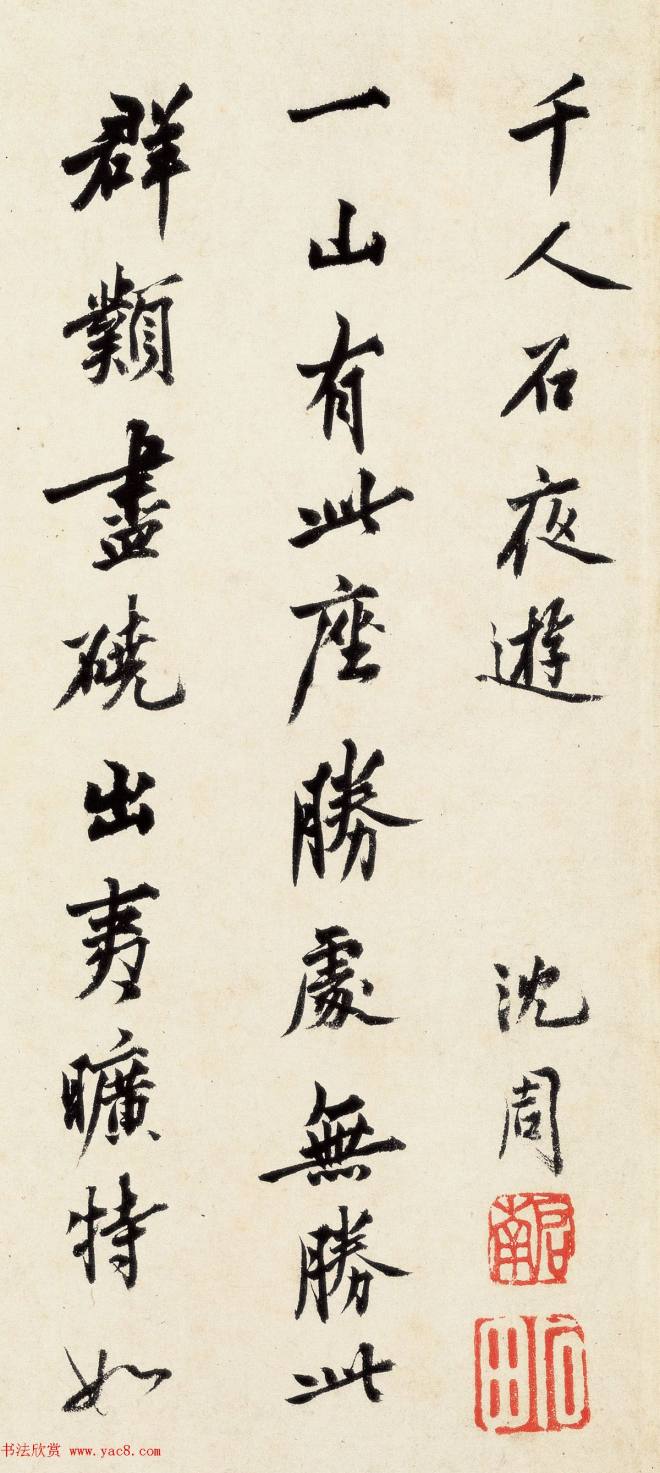 千人石夜遊
沈周
啟南
石田
一山有此座勝處無勝此
群類盡磽出夷曠特如
书法欣赏 www.yac8.com